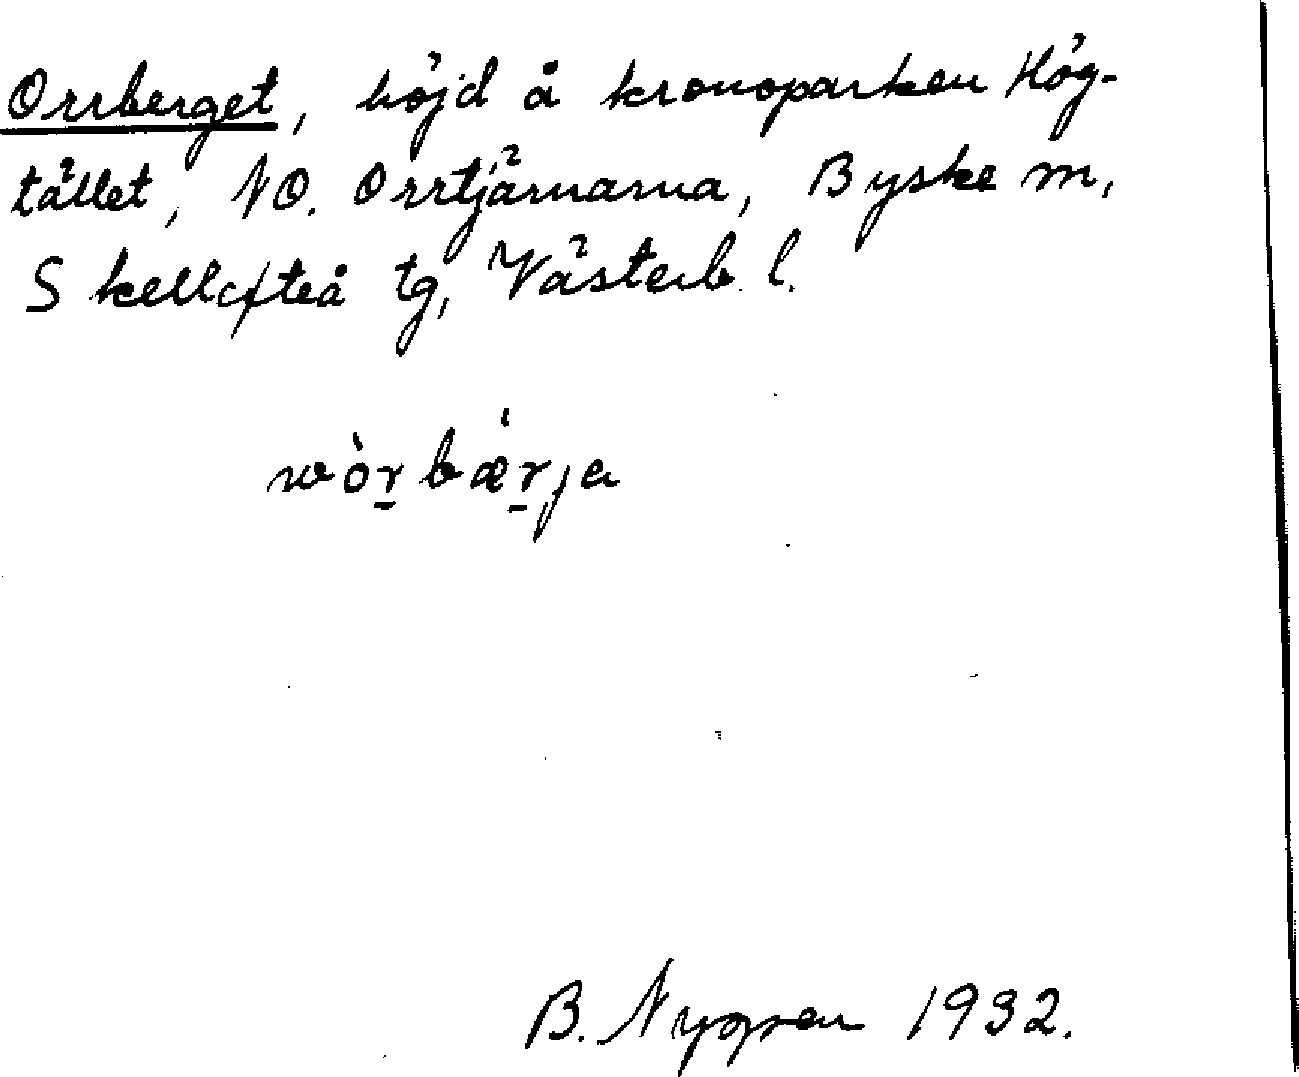 Orrberget, höjd å kronoparken Hög-
tället, NO. Orrtjärnarna, Byske m,
Skellefteå tg, Västerb. l.
wòr̲bǽr̲ja
B. Nygren 1932.